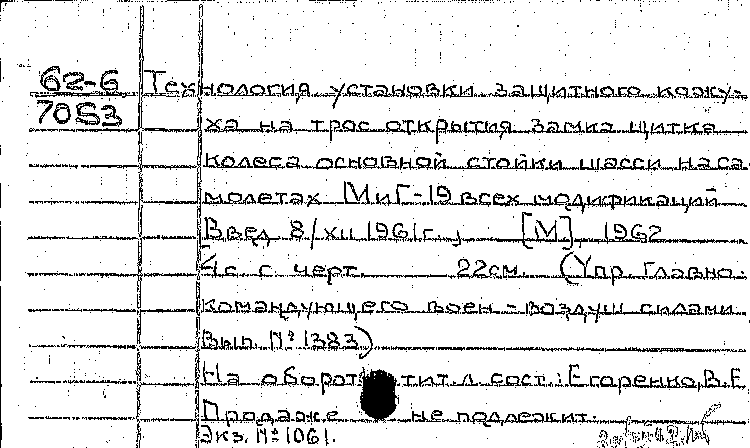 62-6 Технология установки защитного кожу-
7053 ха на трос открытия замка щитка
колеса основной стойки шасси на са
молетах МиГ-19 всех модификаций
Введ 8/XII 1961г., [М], 1962
4с с черт. 22см. (Упр. Главно-
командующего воен-воздуш силами.
Вып. № 1383)
На обороте тит. л. сост.: Егоренко, В.Е.
Продаже не подлежит.
Экз. № 1061.